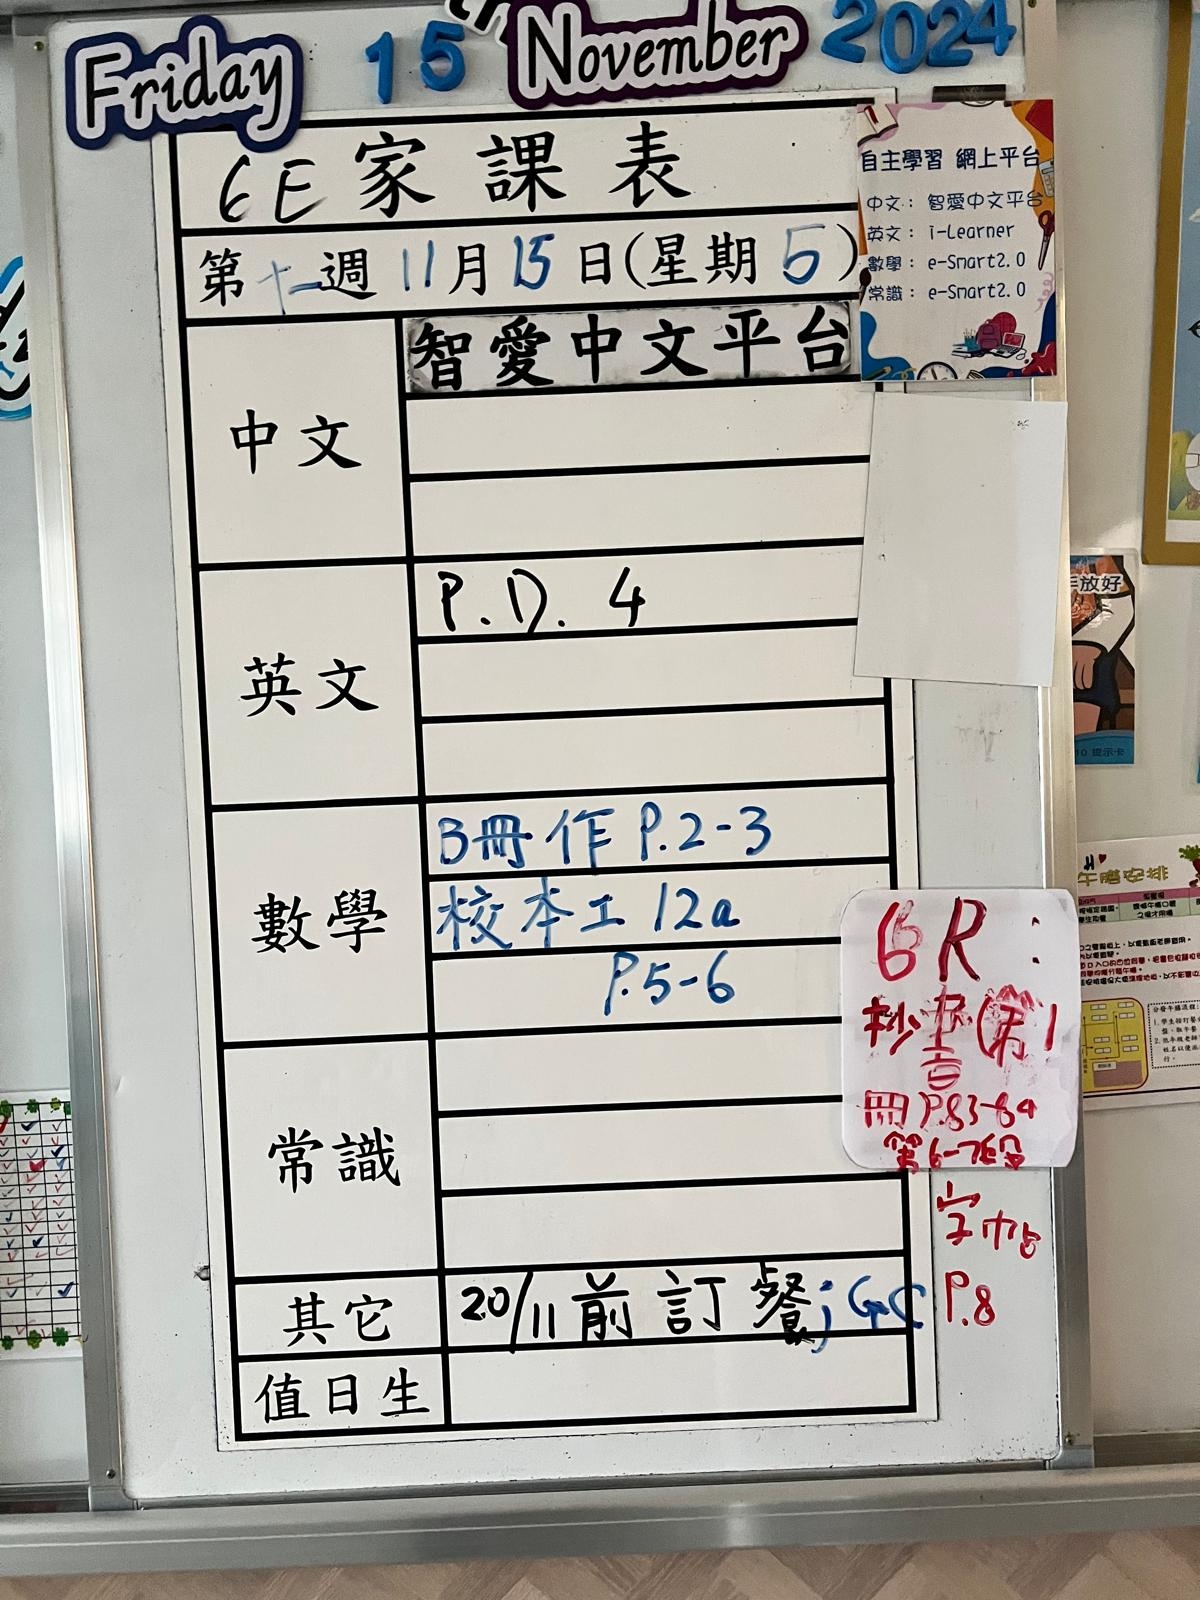 Friday 15th November 2024
6E家課表
第十一週 11月15日(星期5)
自主學習 網上平台
中文: 智愛中文平台
英文: i-Learner
數學: e-Smart2.0
常識: e-Smart2.0
中文
智愛中文平台
英文
P.D. 4
數學
B冊 作 P.2-3
校本工 12a
P.5-6
常識
其它
20/11前訂餐; GC
值日生
6R:
抄書(第1
冊P.83-84
第6-7段
字帖
P.8
手放好
提示卡
午膳安排